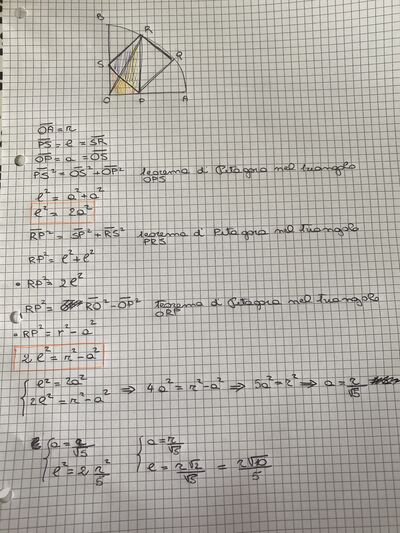 B
R
S
Q
O
P
A
OA = r
PS = l = SR
OP = a = OS
PS² = OS² + OP² teorema di Pitagora nel triangolo
OPS
l² = a² + a²
l² = 2a²
RP² = SP² + RS² teorema di Pitagora nel triangolo
PRS
RP² = l² + l²
• RP² = 2l²
RP² = RO² - OP² teorema di Pitagora nel triangolo
ORP
• RP² = r² - a²
2l² = r² - a²
{ l² = 2a²
2l² = r² - a² ⇒ 4a² = r² - a² ⇒ 5a² = r² ⇒ a = r/√5
{ a = r/√5 { a = r/√5
l² = 2 r²/5 l = r√2/√5 = r√10/5